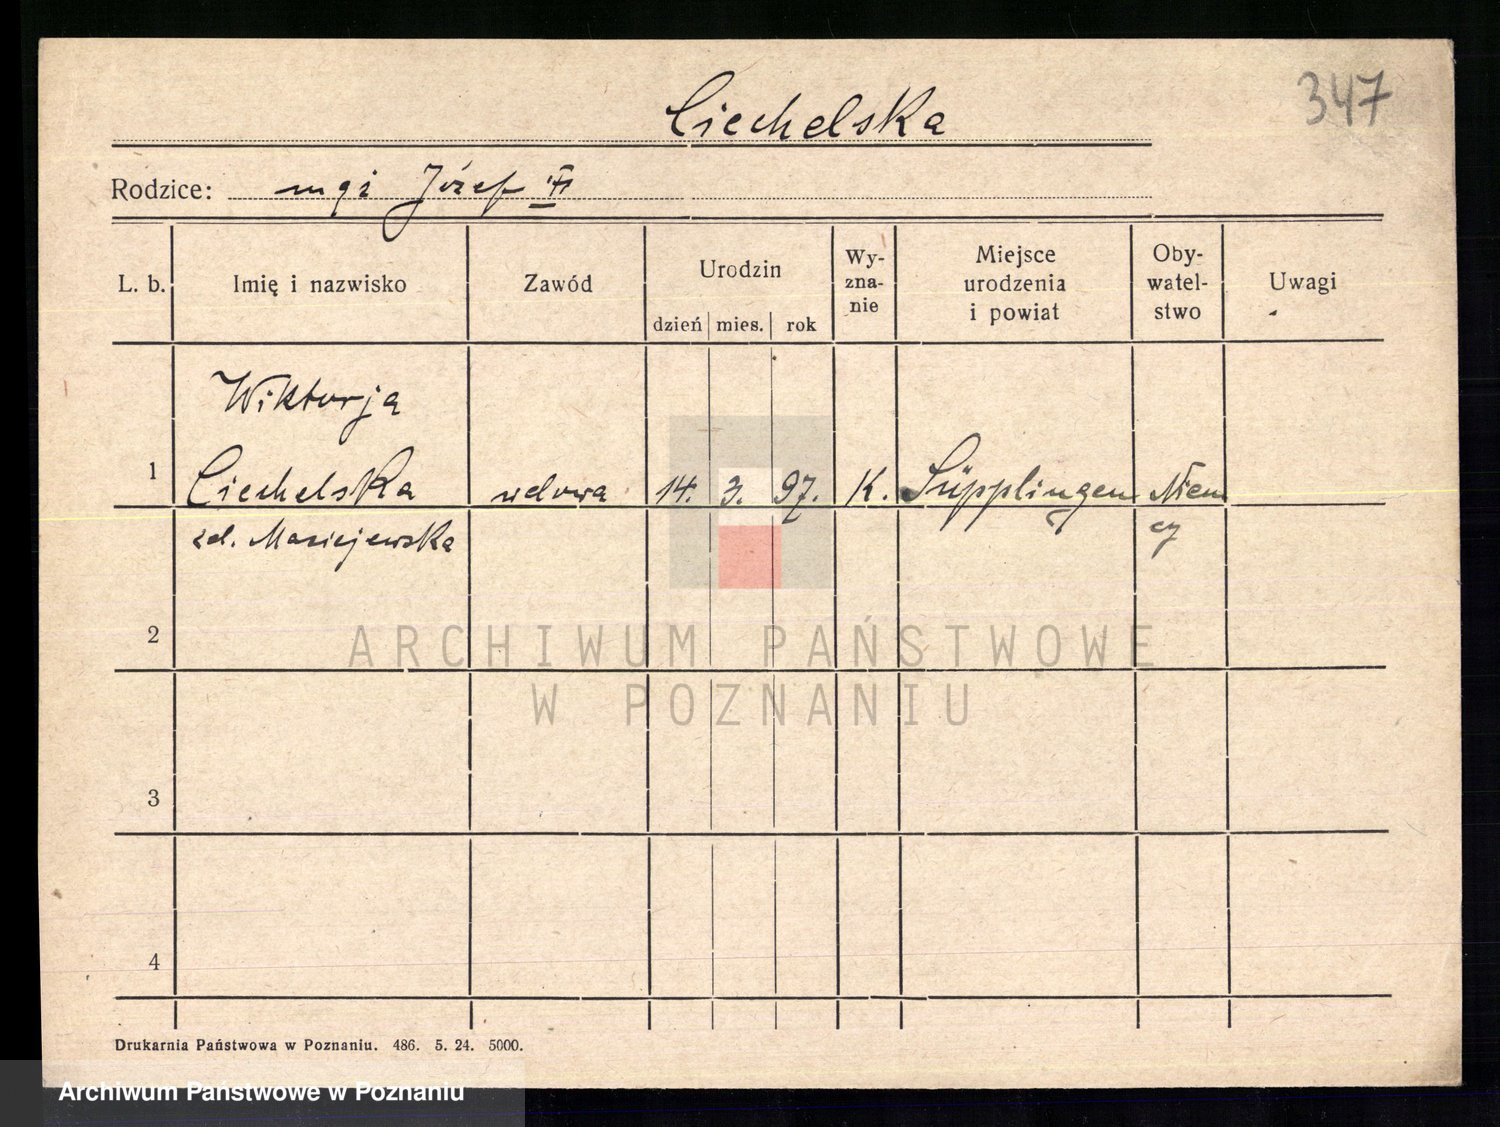 347
Ciechelska
Rodzice: mąż Józef
L. b. Imię i nazwisko Zawód Urodzin dzień mies. rok Wy-zna-nie Miejsce urodzenia i powiat Oby-watel-stwo Uwagi
Wiktorja
1 Ciechelska wdowa 14. 3. 97. K. Süpplingen Niem
zd. Maciejewska cy
2
ARCHIWUM PAŃSTWOWE
W POZNANIU
3
4
Drukarnia Państwowa w Poznaniu. 486. 5. 24. 5000.
Archiwum Państwowe w Poznaniu